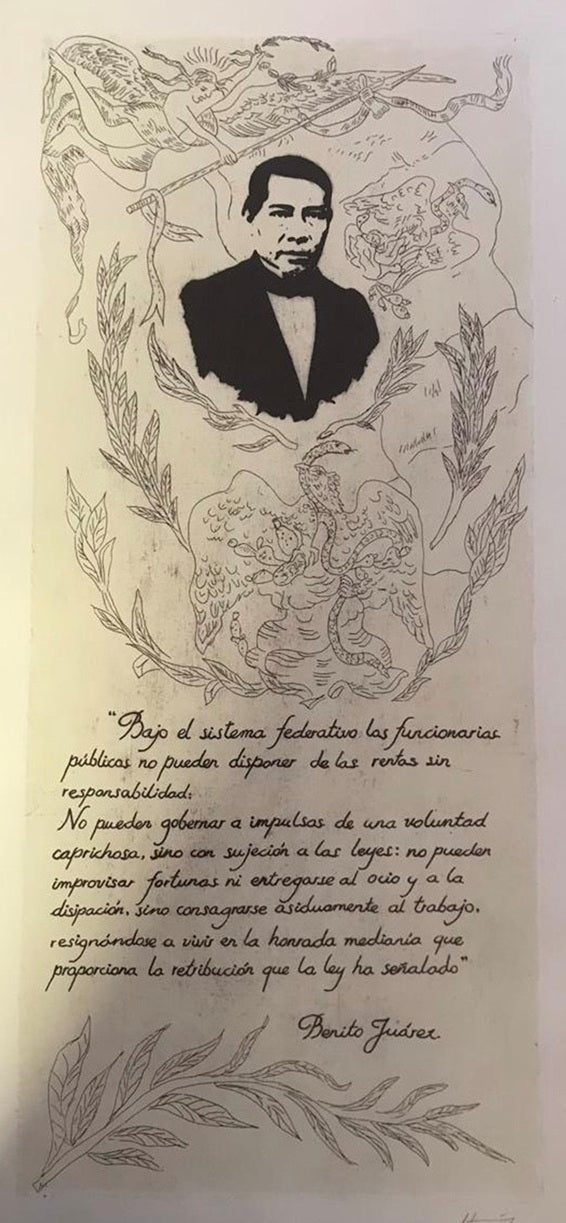 "Bajo el sistema federativo los funcionarios
públicos no pueden disponer de las rentas sin
responsabilidad;
No pueden gobernar a impulsos de una voluntad
caprichosa, sino con sujeción a las leyes: no pueden
improvisar fortunas ni entregarse al ocio y a la
disipación, sino consagrarse asiduamente al trabajo,
resignándose a vivir en la honrada medianía que
proporciona la retribución que la ley ha señalado"
Benito Juárez.